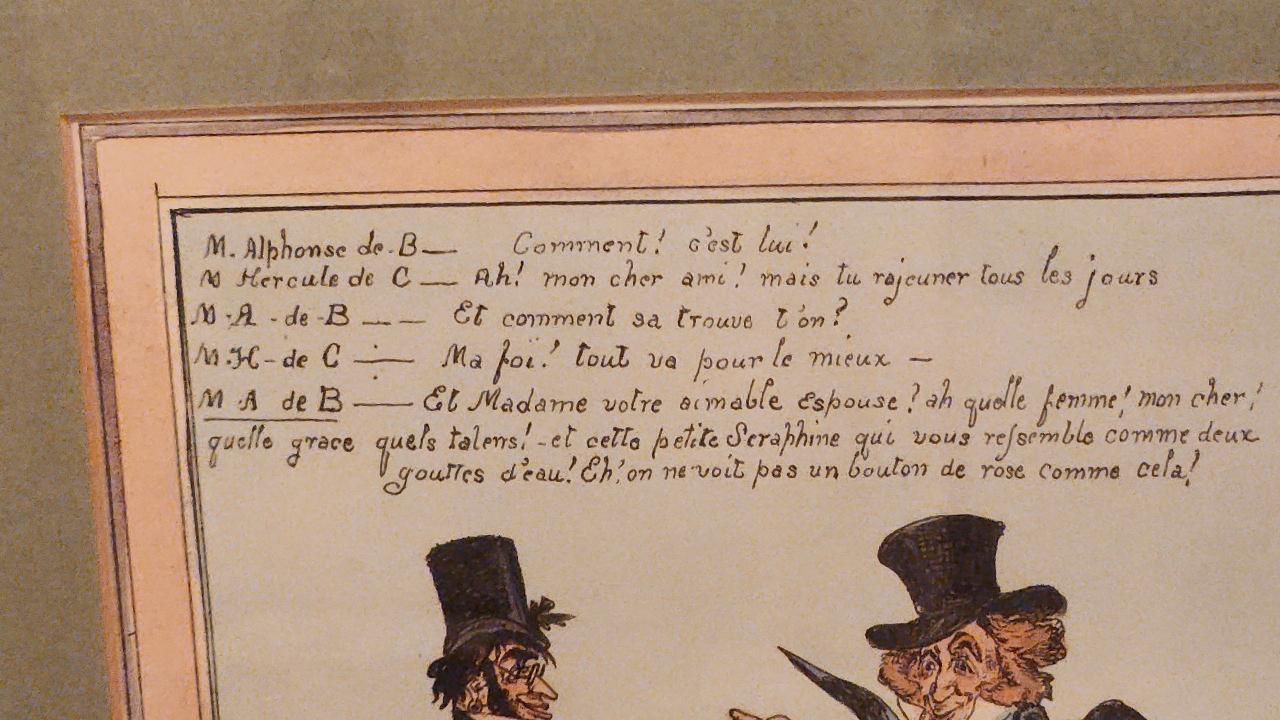 M. Alphonse de B— Comment! c'est lui!
M Hercule de C — Ah! mon cher ami! mais tu rajeuner tous les jours
M. A - de - B — — Et comment sa trouve t'on?
M. H - de C — Ma foi! tout va pour le mieux —
M A de B — Et Madame votre aimable Espouse? ah quelle femme! mon cher!
quelle grace quels talens! - et cette petite Seraphine qui vous ressemble comme deux
gouttes d'eau! Eh! on ne voit pas un bouton de rose comme cela!